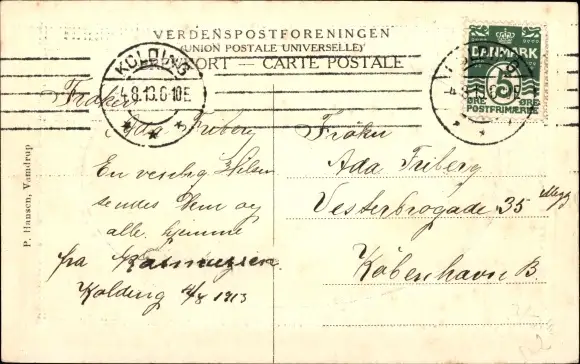 VERDENSPOSTFORENINGEN
(UNION POSTALE UNIVERSELLE)
ORT — CARTE POSTALE
KOLDING
4.8.13.6-10E.
DANMARK
5
ØRE ØRE
POSTFRIMÆRKE
P. Hansen, Vamdrup
Frøken
Ada Friberg
En venlig Hilsen
sendes Dem og
alle hjemme
fra Rasmussen.
Kolding 4/8 1913
Frøken
Ada Friberg
Vesterbrogade 35
København B.